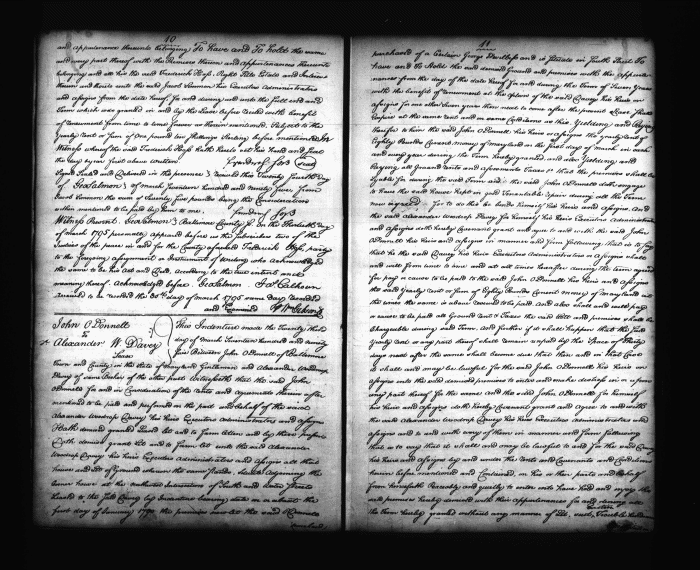 10
and appurtenances thereunto belonging To have and To hold the same
and every part thereof with the Premises Herein and Appurtenances thereunto
belonging and all his the said Frederick Right Title Estate and Interest
therein and thereto unto the said Jacob his Executors Administrators
and assigns from the date hereof for and during and unto the full end and
Term which was granted in and by the Lease before recited with benefit
of renewment from time to time forever as therein mentioned Subject to the
Yearly Rent or sum of One pound ten Shillings Sterling before mentioned In
Witness whereof the said Frederick hath hereto set his hand and seal
the day & year first above written
Signed Sealed and Delivered in the presence } received this Twenty fourth day
of Geo Salmon } of march Seventeen hundred and ninety five from
Jacob the sum of Seventy five pounds being the Consideration
within mentioned to be paid by him to me.
Witness Present Geo Salmon } Baltimore County Sc. on the day
of March 1795 personally appeared before us the subscribers two of the
Justices of the peace in and for the County aforesaid Frederick party
to the foregoing assignment or Instrument of Writing who acknowledged
the same to be his Act and Deed According to the true intent and
meaning thereof. Acknowledged before Geo Salmon. Jas Calhoun
Received to be recorded the day of march 1795 same day recorded
and Examined Wm Gibson
John O Donnell
to
Alexander W Davey
Lease
This Indenture made the Twenty third
day of March Seventeen hundred and ninety
five Between John O Donnell of Baltimore
Town and County in the state of Maryland Gentleman and Alexander
Davey of same Place of the other part Witnesseth that the said John
O Donnell for and in Consideration of the rents and agreements herein after
mentioned to be paid and performed on the part and behalf of the said
Alexander Davey his heirs Executors Administrators and assigns
Hath demised granted and to farm letten and by these presents
Doth demise grant let and to farm let unto the said Alexander
Davey his heirs Executors Administrators and assigns all that
house and lot of Ground whereon the same stands adjoining the
corner house at the Intersection of South and Water Streets
to the said Davey by Indenture bearing date on or about the
first day of January 179 the premises
11
purchased of a Certain George and is situate in South Street To
have and To Hold the said demised Ground and premises with the appurte
nances from the day of the date hereof for and during the Term of Seven Years
with the benefit of renewment at the option of the said Davey his Heirs or
Assigns for one other Seven Years then next to come after the present Lease shall
Expire at the same rent and on same Conditions as this. Yielding and Paying
therefor to him the said John O Donnell his heirs or assigns the yearly rent of
Eighty Pounds Current money of maryland on the first day of march in each
and every year during the Term hereby granted and also Yielding and
Paying all Ground rents and Taxes that the premises shall be
liable for during the said Term and the said John O Donnell doth engage
to have the said house kept in good Tenantable repair during all the Term
now signed. For to do this he binds himself his heirs and assigns. And
the said Alexander Davey for himself his heirs Executors Administrators
and assigns doth hereby Covenant grant and agree to and with the said John
O Donnell his heirs and assigns in manner and form following that is to say
that he the said Davey his heirs Executors Administrators or assigns shall
and will from time to time and at all times hereafter during the term agreed
for pay or cause to be paid to the said John O Donnell his heirs and assigns
the said Yearly rent or sum of Eighty Pounds Current money of maryland at
the times the same is above reserved to be paid. And also shall and will pay
or cause to be paid all Ground rent & Taxes the said lot and premises shall be
chargeable during said Term. And further if it shall happen that the said
Yearly Rent or any part thereof shall remain unpaid by the Space of Thirty
days next after the same shall become due that then and in that Case
it shall and may be lawful for the said John O Donnell his heirs or
assigns into the said demised premises to enter and make distress in or upon
any part thereof for the same. And the said John O Donnell for himself
his heirs and assigns doth hereby Covenant grant and agree to and with
the said Alexander Davey his heirs Executors Administrators and
assigns and to and with every of them in manner and form following
that is to say that it shall and may be lawful to and for the said Davey
his heirs and assigns by and under the Rents and Covenants and Conditions
herein before mentioned and Contained, on his or their parts and behalf
from henceforth Peaceably and quietly to enter into have hold and enjoy the
said premises hereby demised with their appurtenances for and during all
the term hereby granted without any manner of let, suit, Trouble